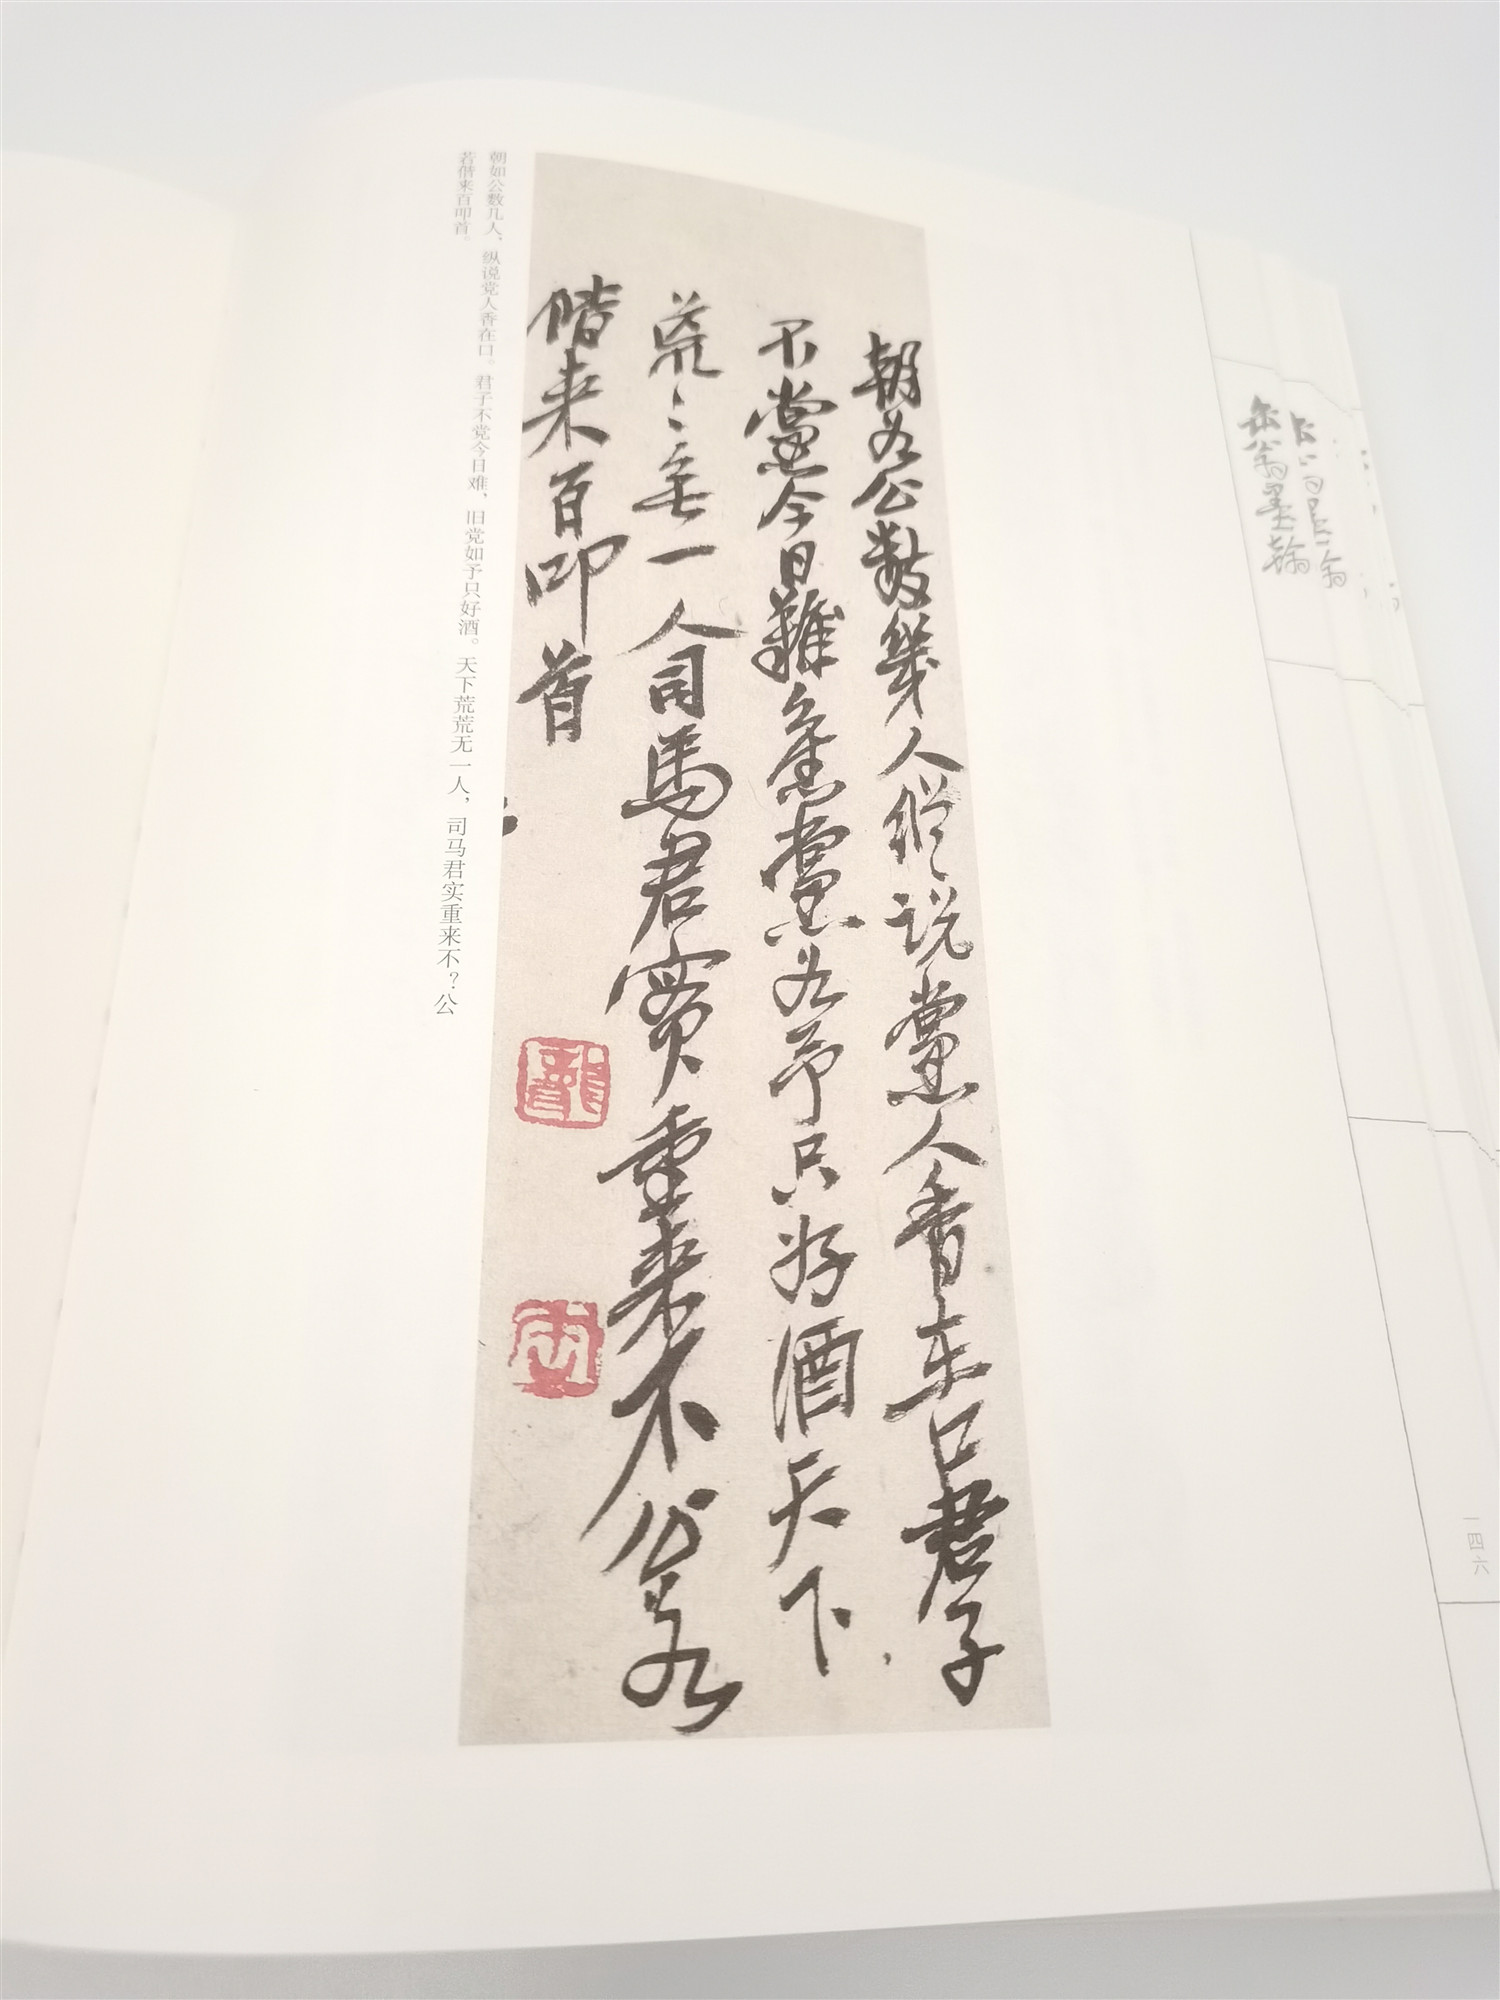 缶翁墨翰
一四六
朝如公數幾人縱說黨人香在口君子
不黨今日難舊黨如予只好酒天下
荒〻無一人司馬君實重來不公若
偕來百叩首
朝如公数几人，纵说党人香在口。君子不党今日难，旧党如予只好酒。天下荒荒无一人，司马君实重来不？公
若偕来百叩首。